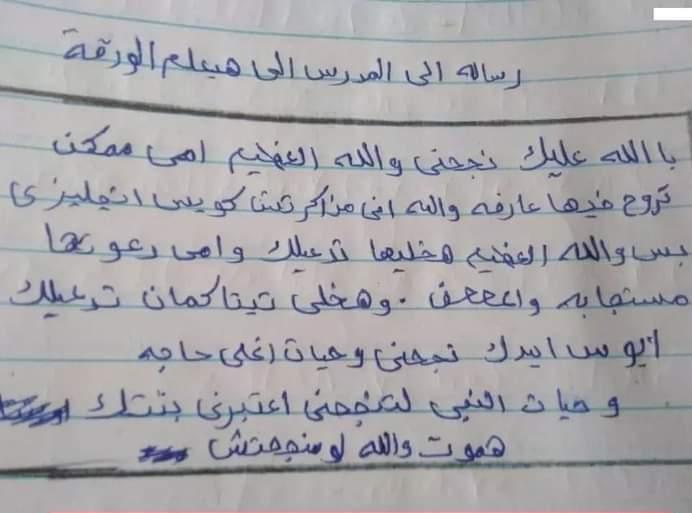 رساله الى المدرس الى هيعلم الورقة
باالله عليك نجحنى والله العظيم امى ممكن
تروح فيها عارفه والله انى مزاكرتش كويس انجليزى
بس والله العظيم هخليها تدعيلك وامى دعوتها
مستجابه وا وهخلى تيتا كمان تدعيلك
ابوس ايدك نجحنى وحيات اغلى حاجه
وحيات النبى لتنجحنى اعتبرنى بنتك
هموت والله لو منجحتش